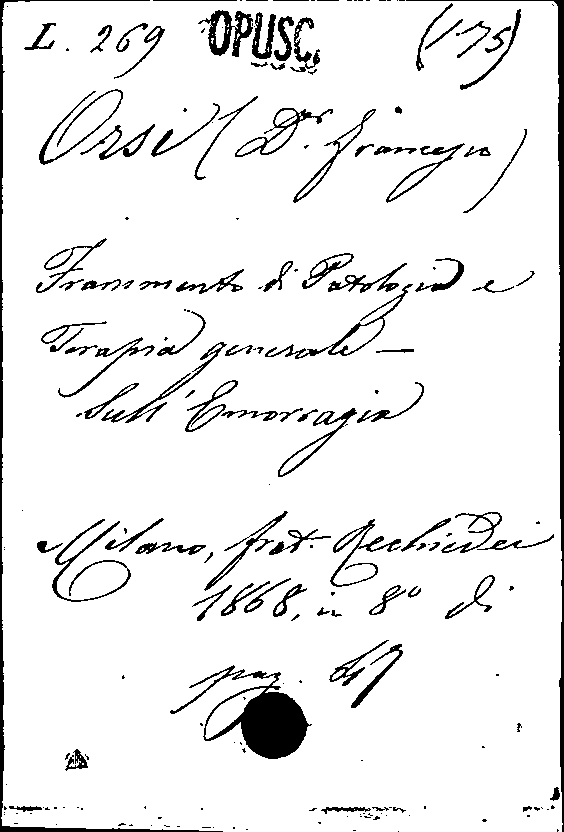 L. 269 OPUSC. (175)
Orsi (Dr. Francesco)
Frammento di Patologia e
Terapia generale —
Sull' Emorragia
Milano, frat. Rechiedei
1868, in 8º di
pag. 47